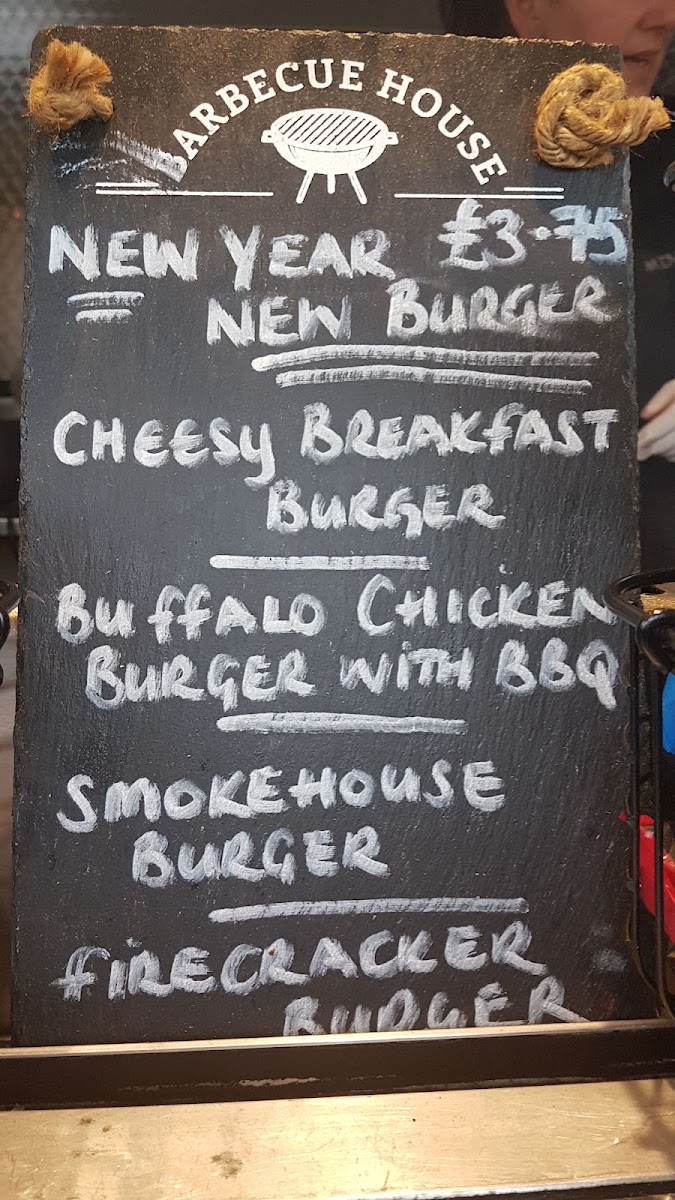 BARBECUE HOUSE
NEW YEAR £3.75
NEW BURGER
CHEESY BREAKFAST
BURGER
BUFFALO CHICKEN
BURGER WITH BBQ
SMOKEHOUSE
BURGER
FIRECRACKER
BURGER